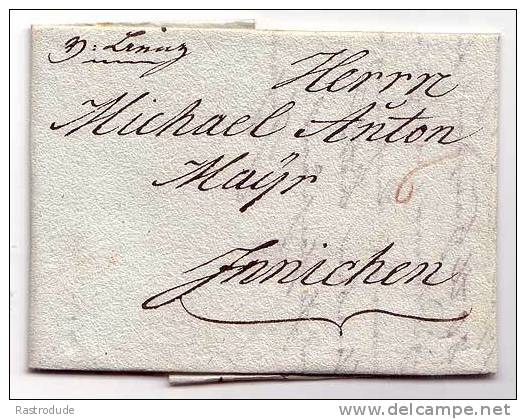 p: Lienz
Herrn
Michael Anton
Mayr
6
Innichen
Rastrodude
delcampe.net